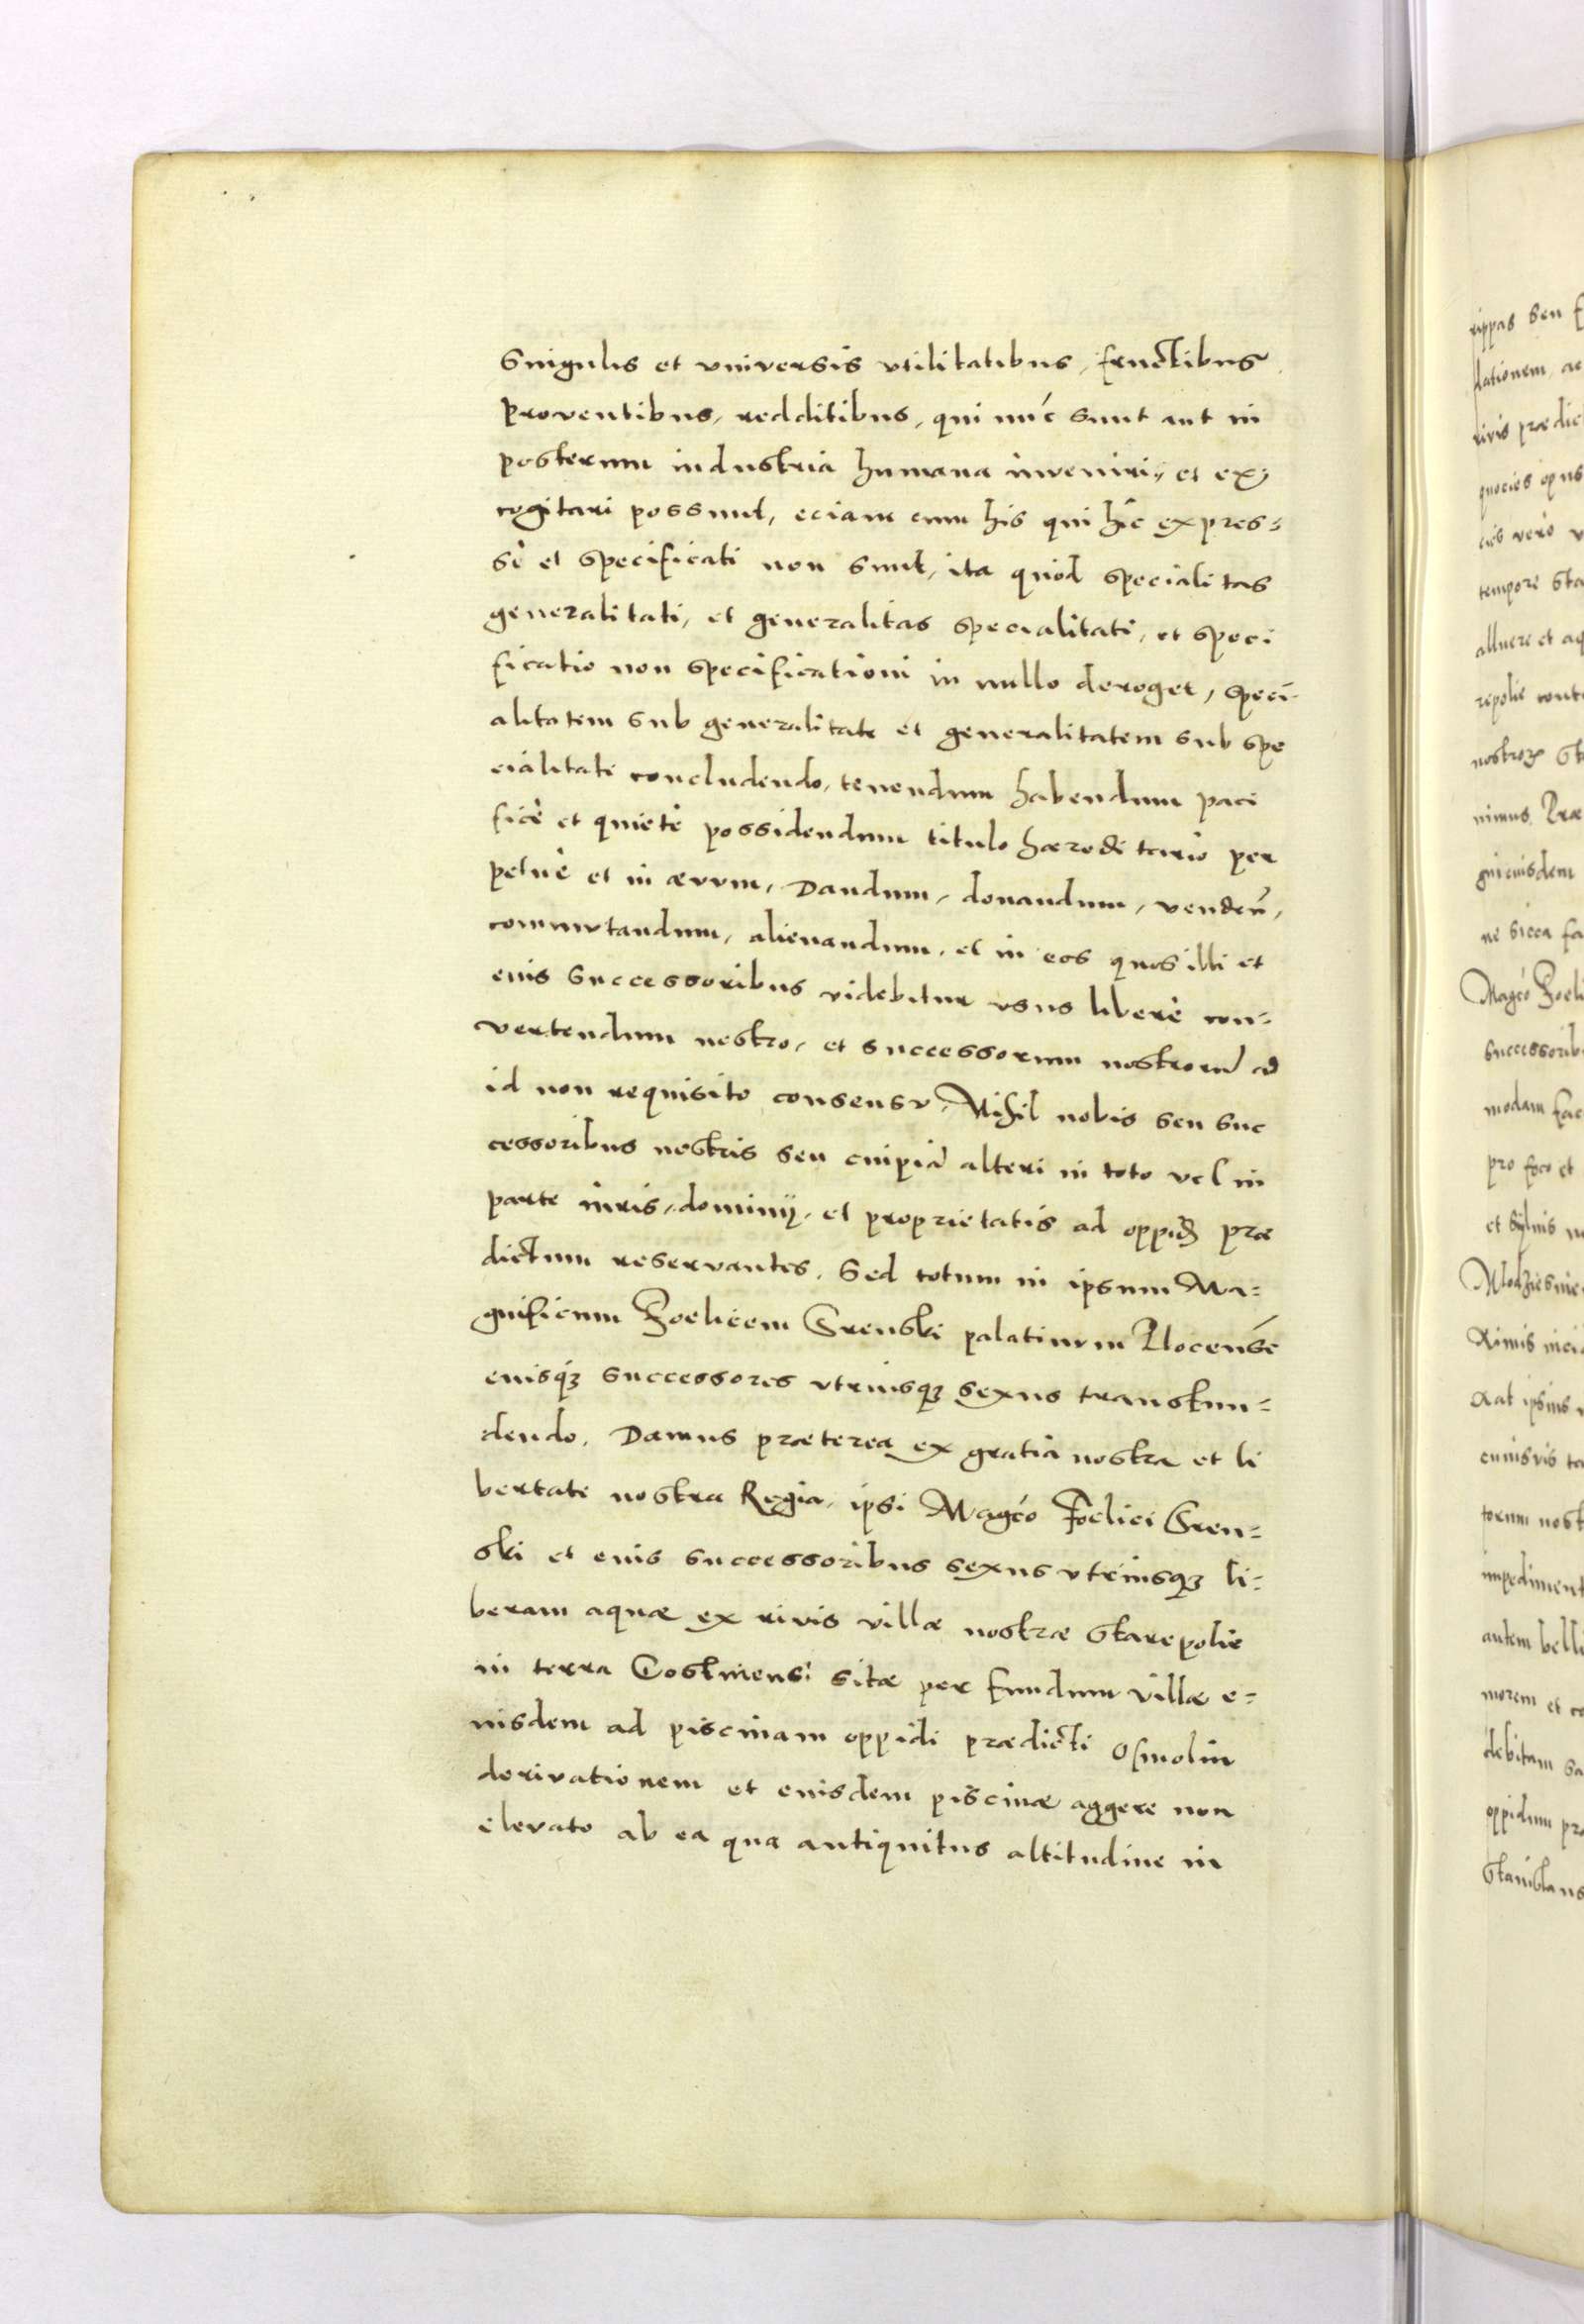 Singulis et universis utilitatibus, fructibus,
proventibus, redditibus, qui nūc sunt aut in
posterum industria humana inveniri, et ex=
cogitari possunt, eciam cum his qui hīc expres=
sè et specificati non sunt, ita quòd specialitas
generalitati, et generalitas specialitati, et speci
ficatio non specificationi in nullo deroget, speci=
alitatem sub generalitate et generalitatem sub spe
cialitate concludendo, tenendum habendum paci
ficè et quietè possidendum titulo hæreditario per
petuè et in ævum, Dandum, donandum, venden̄,
commutandum, alienandum, et in eos quos illi et
eius successoribus videbitur usus liberè con=
vertendum nostro, et successorum nostrorū ad
id non requisito consensu, Nihil nobis seu suc
cessoribus nostris seu cuipiā alteri in toto vel in
parte iuris, dominij, et proprietatis ad oppid⁊ præ
dictum reservantes, Sed totum in ipsum Ma=
gnificum Foelicem Srenski palatinum Plocensē
eiusq⁊ successores utriusq⁊ sexus transfun=
dendo, Damus præterea ex gratia nostra et li
bertate nostra Regia, ipsi Magc̄o Foelici Sren=
ski et eius successoribus sexus utriusq⁊ li=
beram aquæ ex rivis villæ nostræ Starepolie
in terra Gostinensi sitæ per fundum villæ e=
iusdem ad piscinam oppidi prædicti Osmolin
derivationem et eiusdem piscinæ aggere non
elevato ab ea qua antiquitus altitudine in
rippas seu
lationem, ac
rivis prædic
quocies opus
tempore sta
alluere et aq
repolie cont
nimus, Præ
eiusdem
ne sicca fa
Magc̄o Foeli
successorib
modam fac
pro foco et
et sylvis
cuiusvis
torum nost
impediment
autem belli
morem et co
debitam sa
oppidum pr
Stanislaus